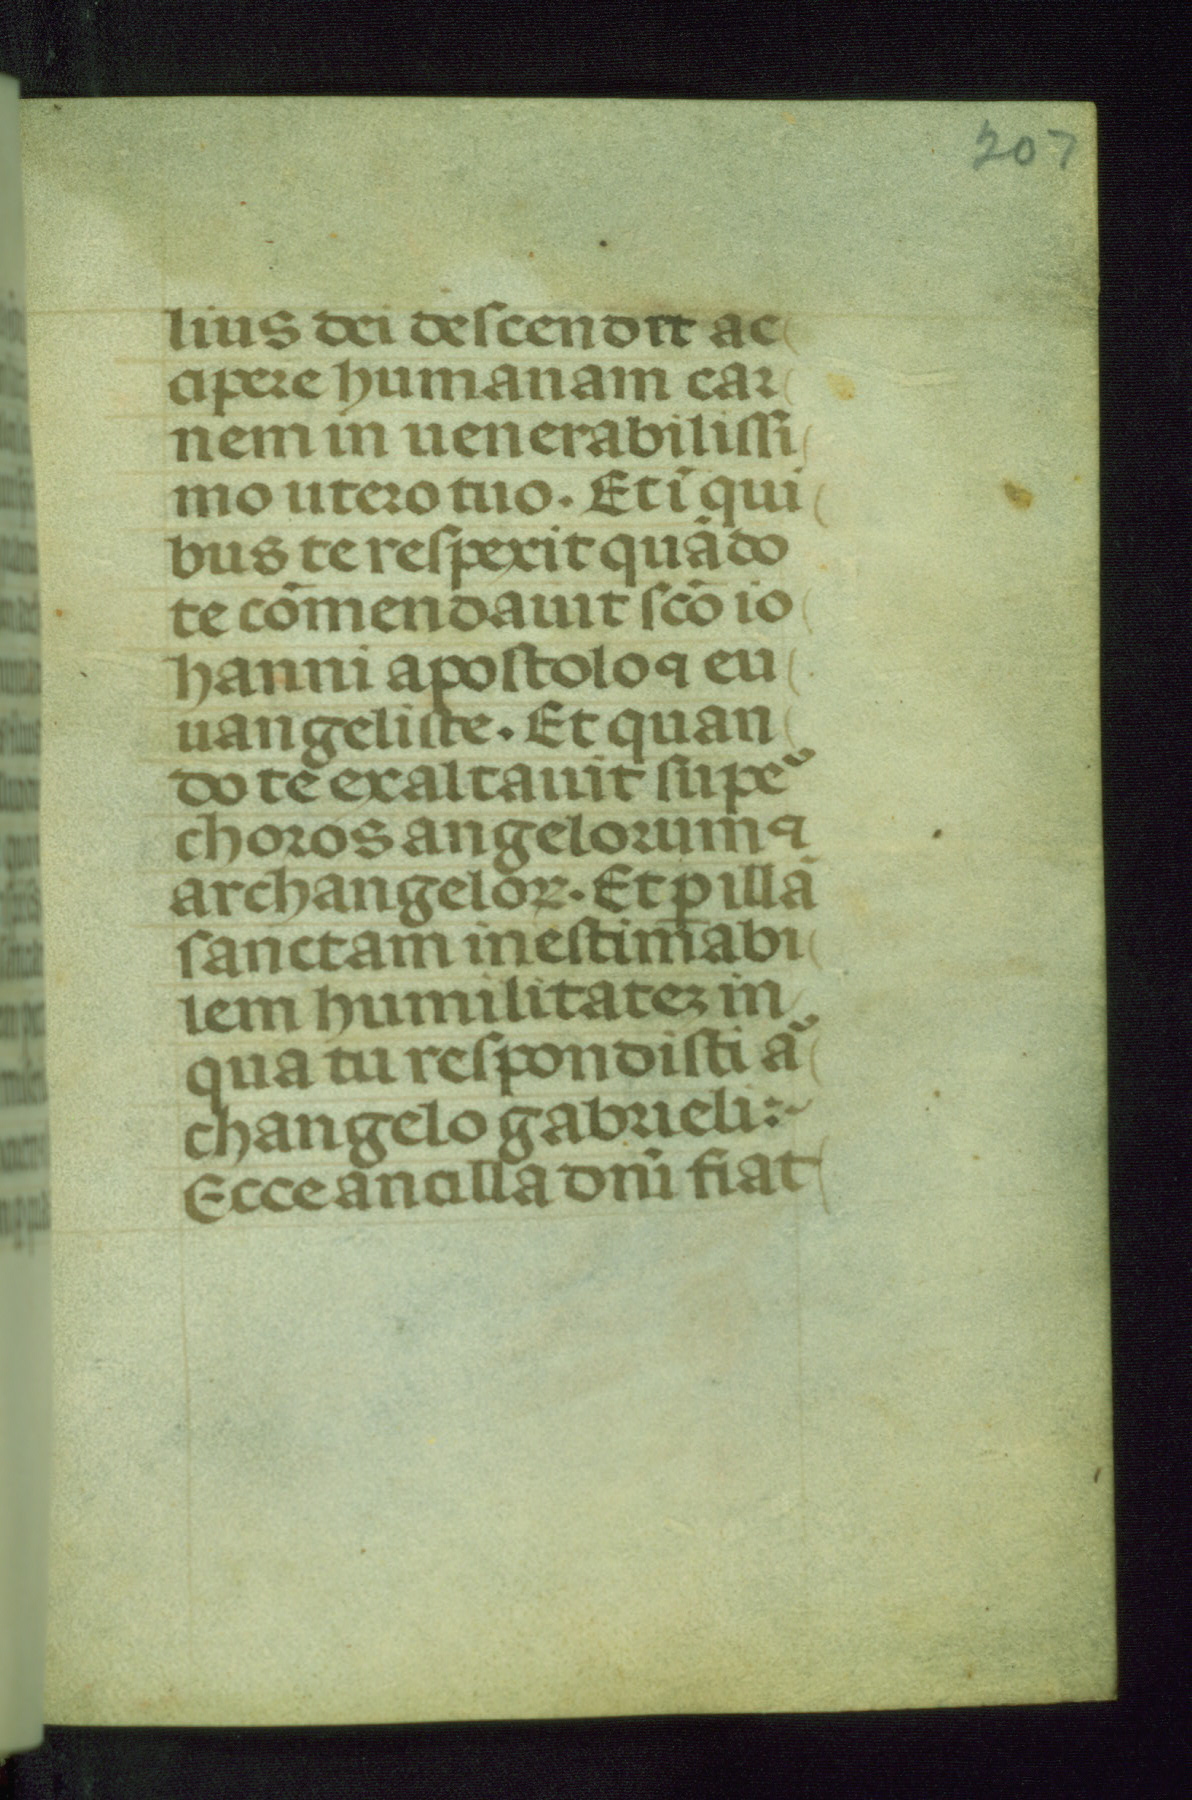 207
lius dei deſcendit ac
cipere humanam car
nem in uenerabiliſſi
mo utero tuo. Et ī qui
bus te reſpexit quādo
te cōmendauit ſcō io
hanni apoſtolo ꝯ eu
uangeliſte. Et quan
do te exaltauit ſupeʳ
choros angelorum ꝯ
archangeloꝝ. Et ꝑ illā
ſanctam ineſtimabi
lem humilitateꝫ in
qua tu reſpondiſti aʳ
changelo gabrieli:~
Ecce ancilla dnī fiat